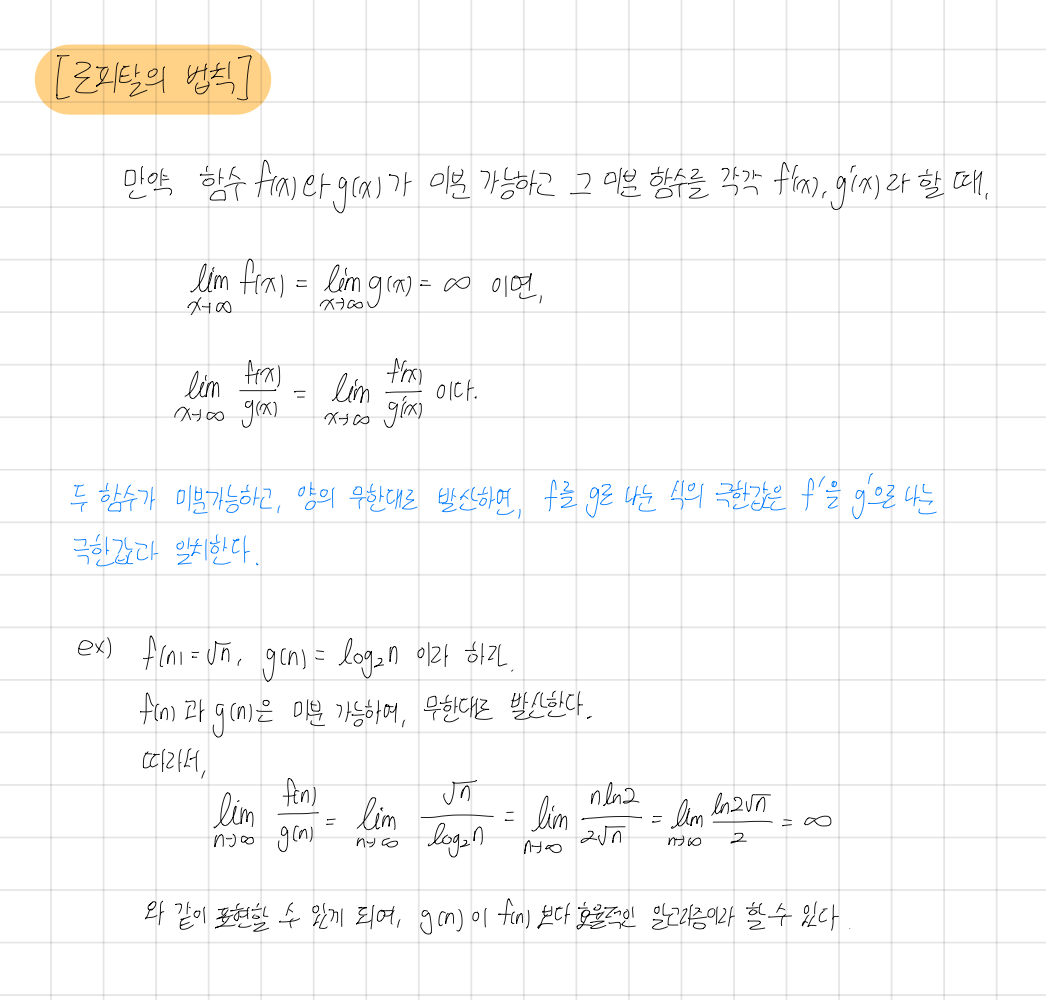 [로피탈의 법칙]
만약 함수 f(x)와 g(x)가 미분 가능하고 그 미분 함수를 각각 f'(x), g'(x)라 할 때,
lim_{x→∞} f(x) = lim_{x→∞} g(x) = ∞ 이면,
lim_{x→∞} f(x)/g(x) = lim_{x→∞} f'(x)/g'(x) 이다.
두 함수가 미분가능하고, 양의 무한대로 발산하면, f를 g로 나눈 식의 극한값은 f'을 g'으로 나눈
극한값과 일치한다.
ex) f(n) = √n, g(n) = log₂n 이라 하자.
f(n)과 g(n)은 미분 가능하며, 무한대로 발산한다.
따라서,
lim_{n→∞} f(n)/g(n) = lim_{n→∞} √n/log₂n = lim_{n→∞} nln2/2√n = lim_{n→∞} ln2√n/2 = ∞
와 같이 표현할 수 있게 되며, g(n)이 f(n)보다 효율적인 알고리즘이라 할 수 있다.